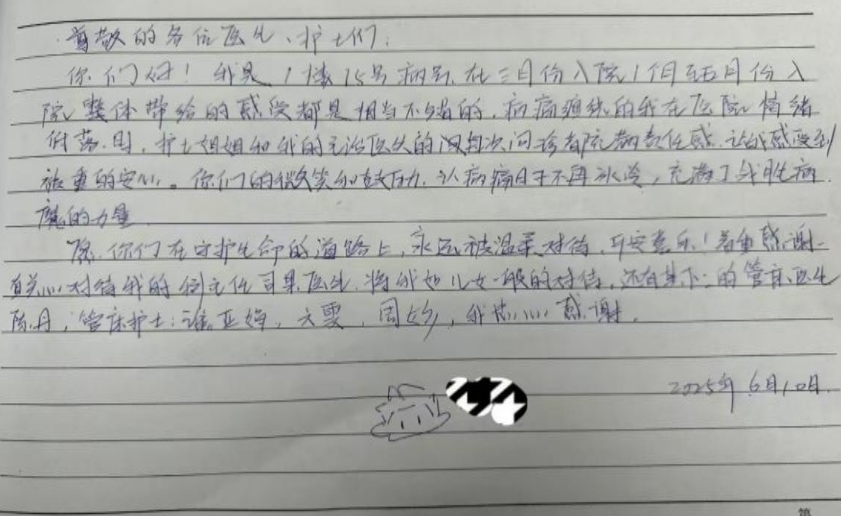 尊敬的各位医生、护士们:
你们好!我是1楼15号病号,在三月份入院1个月至五月份入
院整体带给的感受都是相当不错的,病痛缠绕的我在医院情绪
低落时,护士姐姐和我的主治医生的每次问诊都充满责任感,让我感受到
被重的安心。你们的微笑和鼓励,让病痛日子不再冰冷,充满了战胜病
魔的力量
愿你们在守护生命的道路上,永远被温柔对待,平安喜乐!着重感谢
真心对待我的主任医生,将我如儿女一般的对待,还有其下的管床医生
陈丹,管床护士:亚婷,周,我感谢.
2025年6月10日.